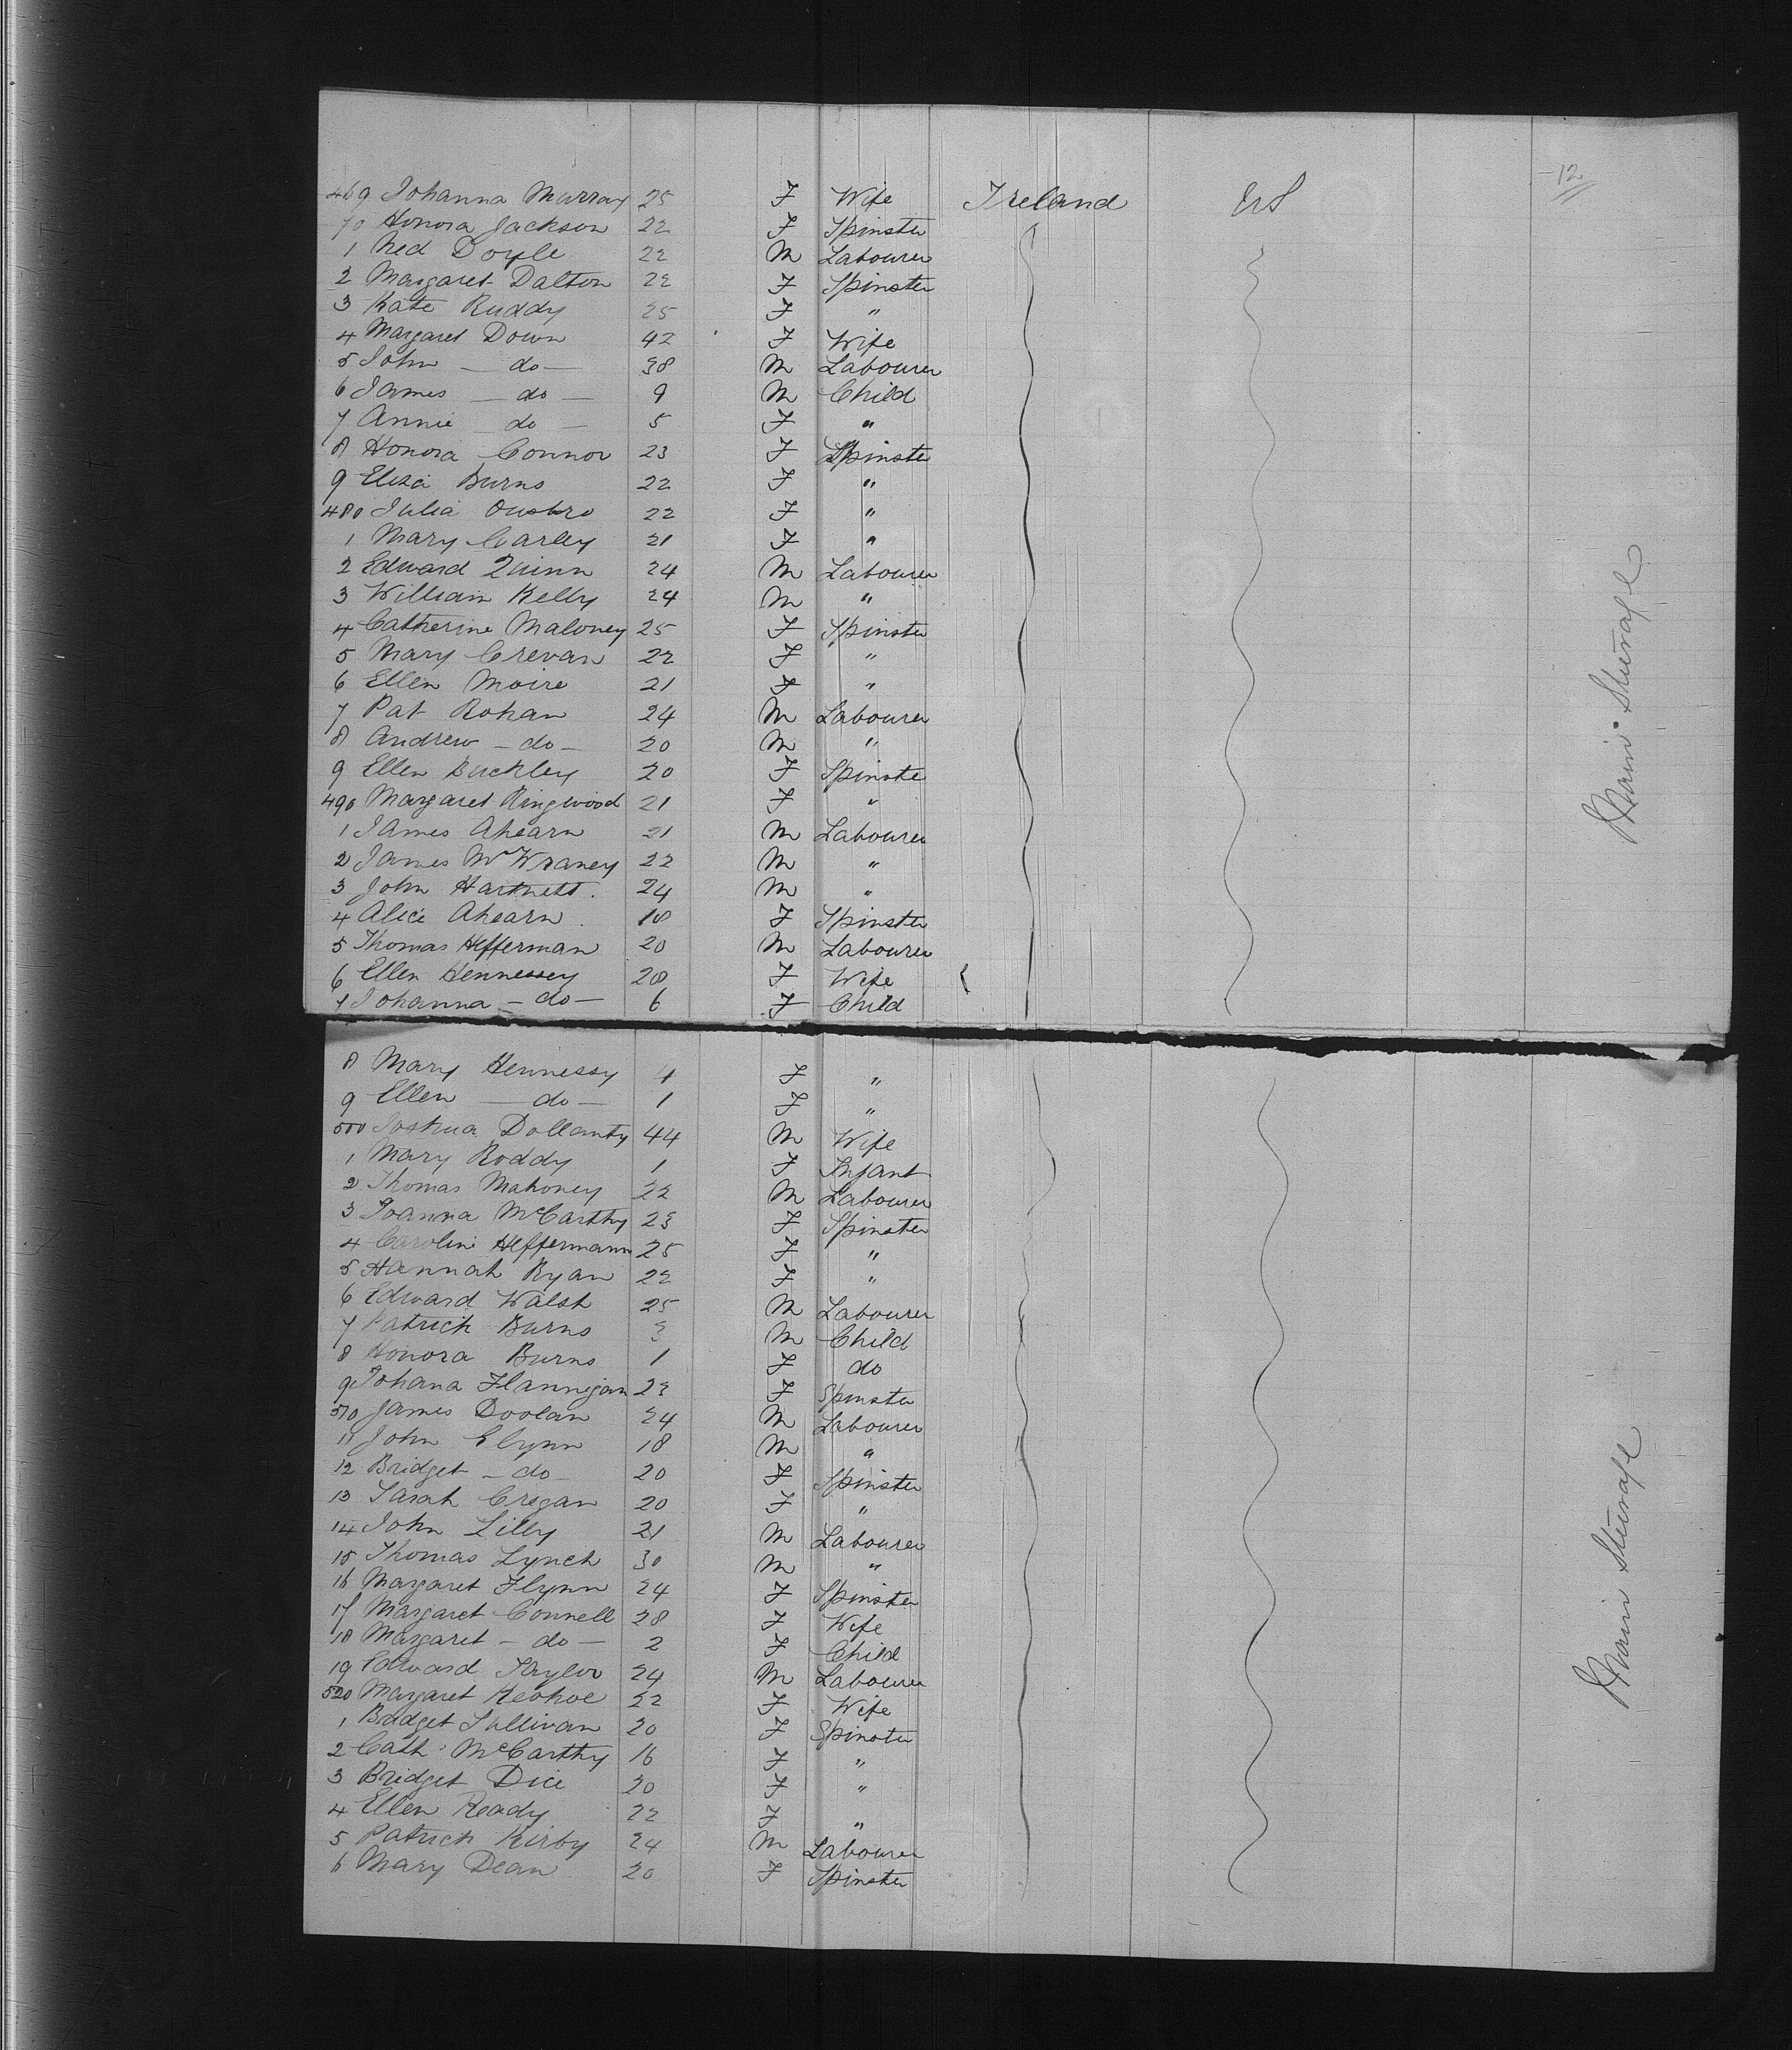 -12
469 Johanna Murray 25 F Wife Ireland US
70 Honora Jackson 22 F Spinster
1 Ned Doyle 22 M Labourer
2 Margaret Dalton 22 F Spinster
3 Kate Ruddy 25 F "
4 Margaret Down 42 F Wife
5 John - do - 38 M Labourer
6 James - do - 9 M Child
7 Annie - do - 5 F "
8 Honora Connor 23 F Spinster
9 Eliza Burns 22 F "
480 Julia 22 F "
1 Mary Carley 21 F "
2 Edward Quinn 24 M Labourer
3 William Kelly 24 M "
4 Catherine Maloney 25 F Spinster
5 Mary Crevan 22 F "
6 Ellen Moire 21 F "
7 Pat Rohan 24 M Labourer
8 Andrew - do - 20 M "
9 Ellen Buckley 20 F Spinste
490 Margaret Ringwood 21 F "
1 James Ahearn 21 M Labourer
2 James McWraney 22 M "
3 John Hartnett. 24 M "
4 Alice Ahearn 18 F Spinster
5 Thomas Hefferman 20 M Labourer
6 Ellen Hennessey 28 F Wife
7 Johanna - do - 6 F Child
Main Steerage
8 Mary Hennessy 4 F "
9 Ellen - do - 1 F "
500 Joshua Dollanty 44 M Wife
1 Mary Roddy 1 F Infant
2 Thomas Mahoney 22 M Labourer
3 Joanna McCarthy 23 F Spinster
4 Caroline Heffermann 25 F "
5 Hannah Ryan 22 F "
6 Edward Walsh 25 M Labourer
7 Patrick Burns 3 M Child
8 Honora Burns 1 F do
9 Johana Flannigan 23 F Spinster
510 James Doolan 24 M Labourer
11 John Glynn 18 M "
12 Bridget - do - 20 F Spinster
13 Sarah Cregan 20 F "
14 John Lilly 21 M Labourer
15 Thomas Lynch 30 M "
16 Margaret Flynn 24 F Spinster
17 Margaret Connell 28 F Wife
18 Margaret - do - 2 F Child
19 Edward Taylor 24 M Labourer
520 Margaret Keohoe 22 F Wife
1 Bridget Sullivan 20 F Spinster
2 Cath. McCarthy 16 F "
3 Bridget Dice 20 F "
4 Ellen Ready 22 F "
5 Patrick Kirby 24 M Labourer
6 Mary Dean 20 F Spinster
Main Steerage